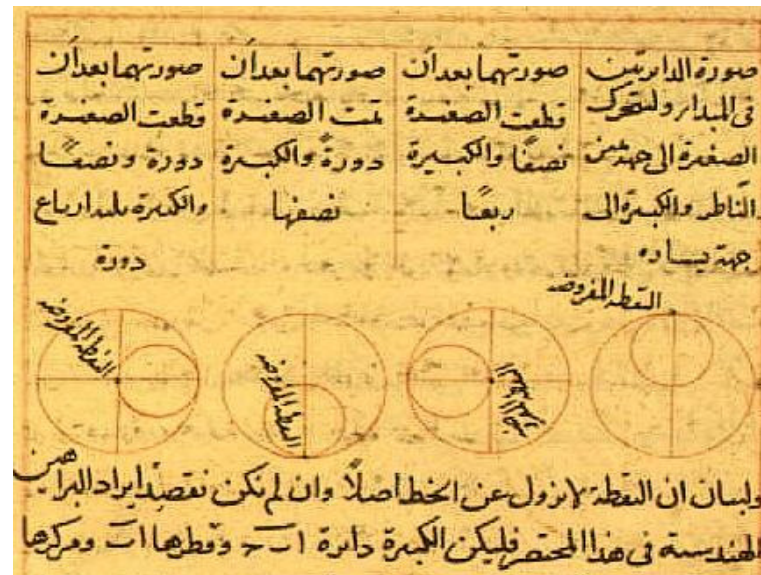 صورة الدايرتين
فى المبدا ولتتحرك
الصغيرة الى جهة يمين
الناظر والكبيرة الى
جهة يساره
صورتهما بعد أن
قطعت الصغيرة
نصفًا والكبيرة
ربعًا
صورتهما بعد أن
تمت الصغيرة
دورةً والكبيرة
نصفها
صورتهما بعد أن
قطعت الصغيرة
دورة ونصفًا
والكبيرة ثلثة ارباع
دورة
النقطة المفروضه
النقطة المفروضه
النقطة المفروضه
ولبيان ان النقطة لا تزول عن الخط اصلًا وان لم نكن نقصد ايراد البراهين
الهندسية فى هذا المختصر فليكن الكبيرة دائرة ا ب ح وقطرها ا ب ومركزها